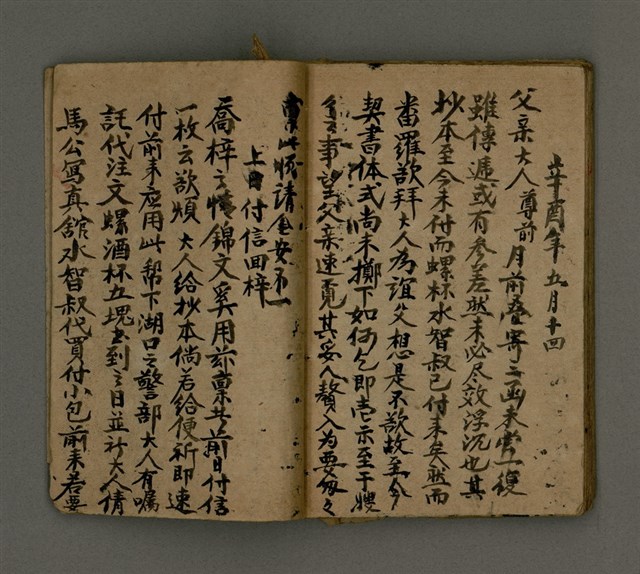 辛酉年五月十四
父亲大人尊前 月前叠寄之函未嘗一復
雖傳遞或有参差然未必尽效浮沉也其
抄本至今未付而螺杯水智叔已付来矣然而
畨羅欲拜大人為誼父想是不欲故至今
契書体式尚未擲下如何乞即壱示至于嫂
事望父亲速覓其妥人贅入为要匆々
稟此恭請金安不一
上日付信回梓
喬梓之情錦文奚用亦稟共前日付信
一枚云欲煩大人給抄本倘若給便祈即速
付前来应用此帮下湖口之警部大人有嘱
託代注文螺酒杯五塊玉到之日並祈大人倩
馬公寫真舘水智叔代買付小包前来若要